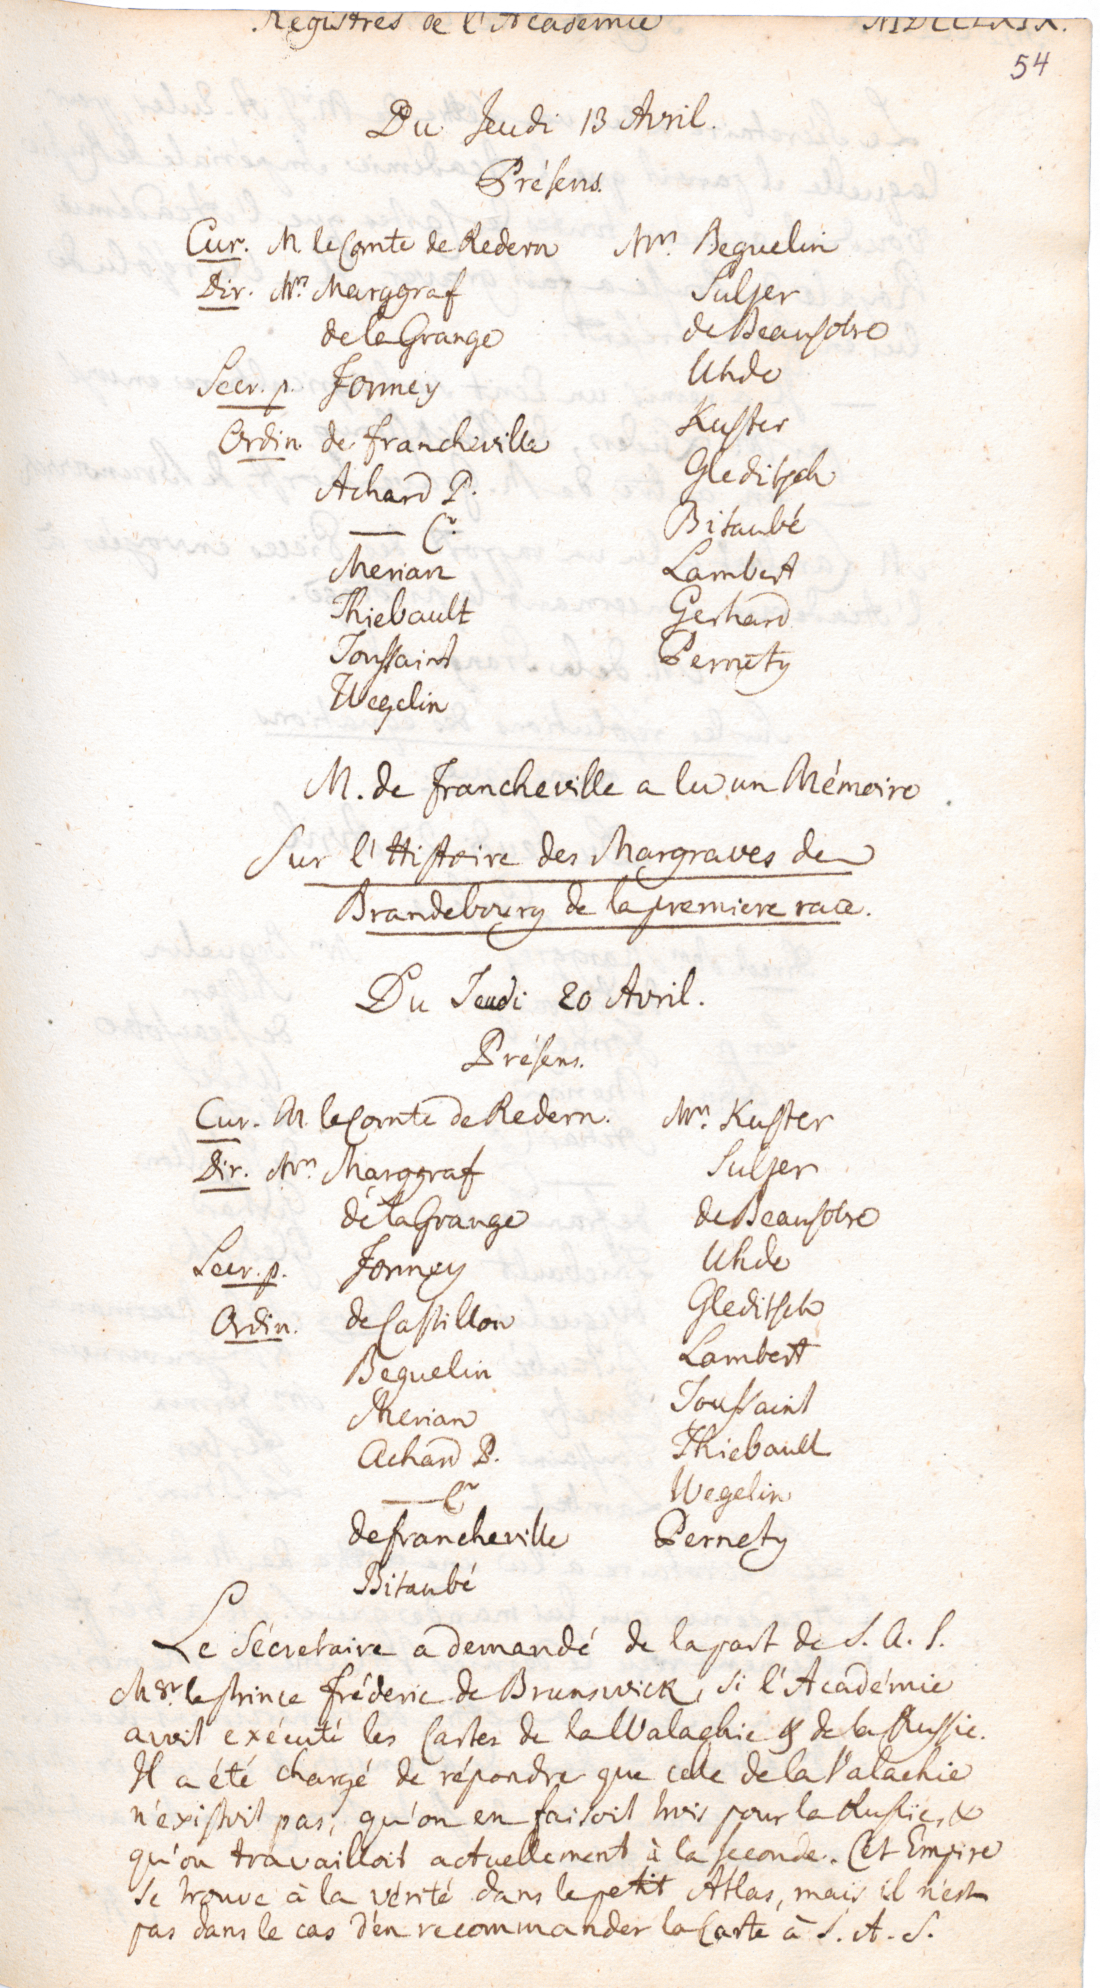 Registres de l'Academie MDCCLXIX.
54
Du Jeudi 13 Avril.
Présens.
Cur. M. le Comte de Redern
Dir. Mrs Marggraf
de la Grange
Secr. p. Formey
Ordin. de Francheville
Achard P.
— Cr.
Merian
Thiebault
Toussaint
Wegelin
Mrs. Beguelin
Sulzer
de Beausobre
Uhde
Kuster
Gleditsch
Bitaubé
Lambert
Gerhard
Pernety
M. de Francheville a lu un Mémoire
Sur l'Histoire des Margraves de
Brandebourg de la premiere race.
Du Jeudi 20 Avril.
Présens.
Cur. M. le Comte de Redern.
Dir. Mrs Marggraf
de la Grange
Secr. p. Formey
Ordin. de Castillon
Beguelin
Merian
Achard P.
— Cr
de Francheville
Bitaubé
Mrs. Kuster
Sulzer
de Beausobre
Uhde
Gleditsch
Lambert
Toussaint
Thiebault
Wegelin
Pernety
Le Sécretaire a demandé de la part de S. A. S.
Msgr. le Prince Fréderic de Brunswick, si l'Académie
avoit exécuté les Cartes de la Walachie & de la Russie.
Il a été chargé de répondre que celle de la Valachie
n'existoit pas, qu'on en faisoit trois pour la Russie, &
qu'on travailloit actuellement à la seconde. Cet Empire
se trouve à la vérité dans le petit Atlas, mais il n'est
pas dans le cas d'en recommander la Carte à S. A. S.